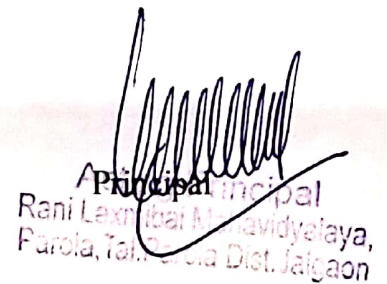 Principal
Principal
Rani Laxmibai Mahavidyalaya,
Parola, Tal. Parola Dist. Jalgaon